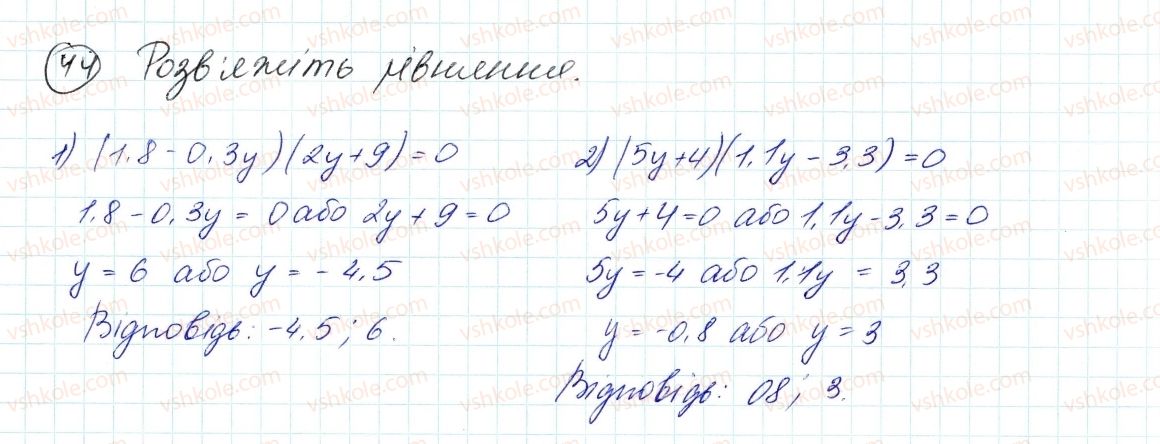 44 Розв'яжіть рівняння.
1) (1,8 - 0,3y)(2y+9)=0
1,8 - 0,3y = 0 або 2y+9=0
y = 6 або y = -4,5
Відповідь: -4,5; 6.
2) (5y+4)(1,1y - 3,3) = 0
5y+4=0 або 1,1y-3,3=0
5y=-4 або 1,1y = 3,3
y=-0,8 або y=3
Відповідь: 08; 3.